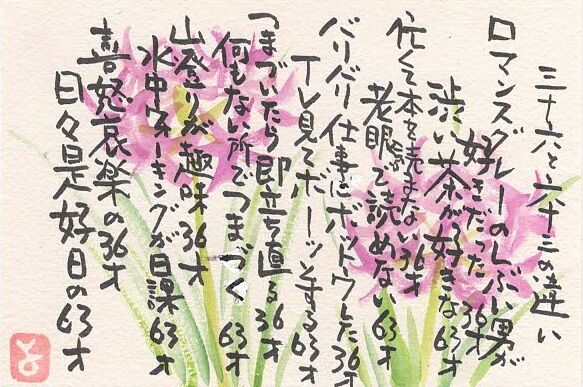 三十六と六十三の違い
ロマンスグレーのしぶい男が
好きだった36才
渋い茶が好きな63才
忙くて本を読まない36才
老眼で読めない63才
バリバリ仕事にボットウした36才
TV見てボーッとする63才
つまづいたら即立ち直る36才
何もない所でつまづく63才
山登りが趣味36才
水中ウォーキングが日課63才
喜怒哀楽の36才
日々是好日の63才